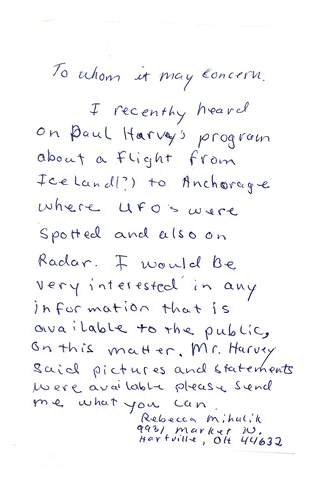 To whom it may concern.
I recenthy heard
on Paul Harvey's program
about a flight from
Iceland(?) to Anchorage
where UFO's were
spotted and also on
Radar. I would be
very interested in any
information that is
available to the public,
on this matter. Mr. Harvey
said pictures and statements
were available please send
me what you can.
Rebecca Mihalik
9931 Market W.
Hartville, OH 44632